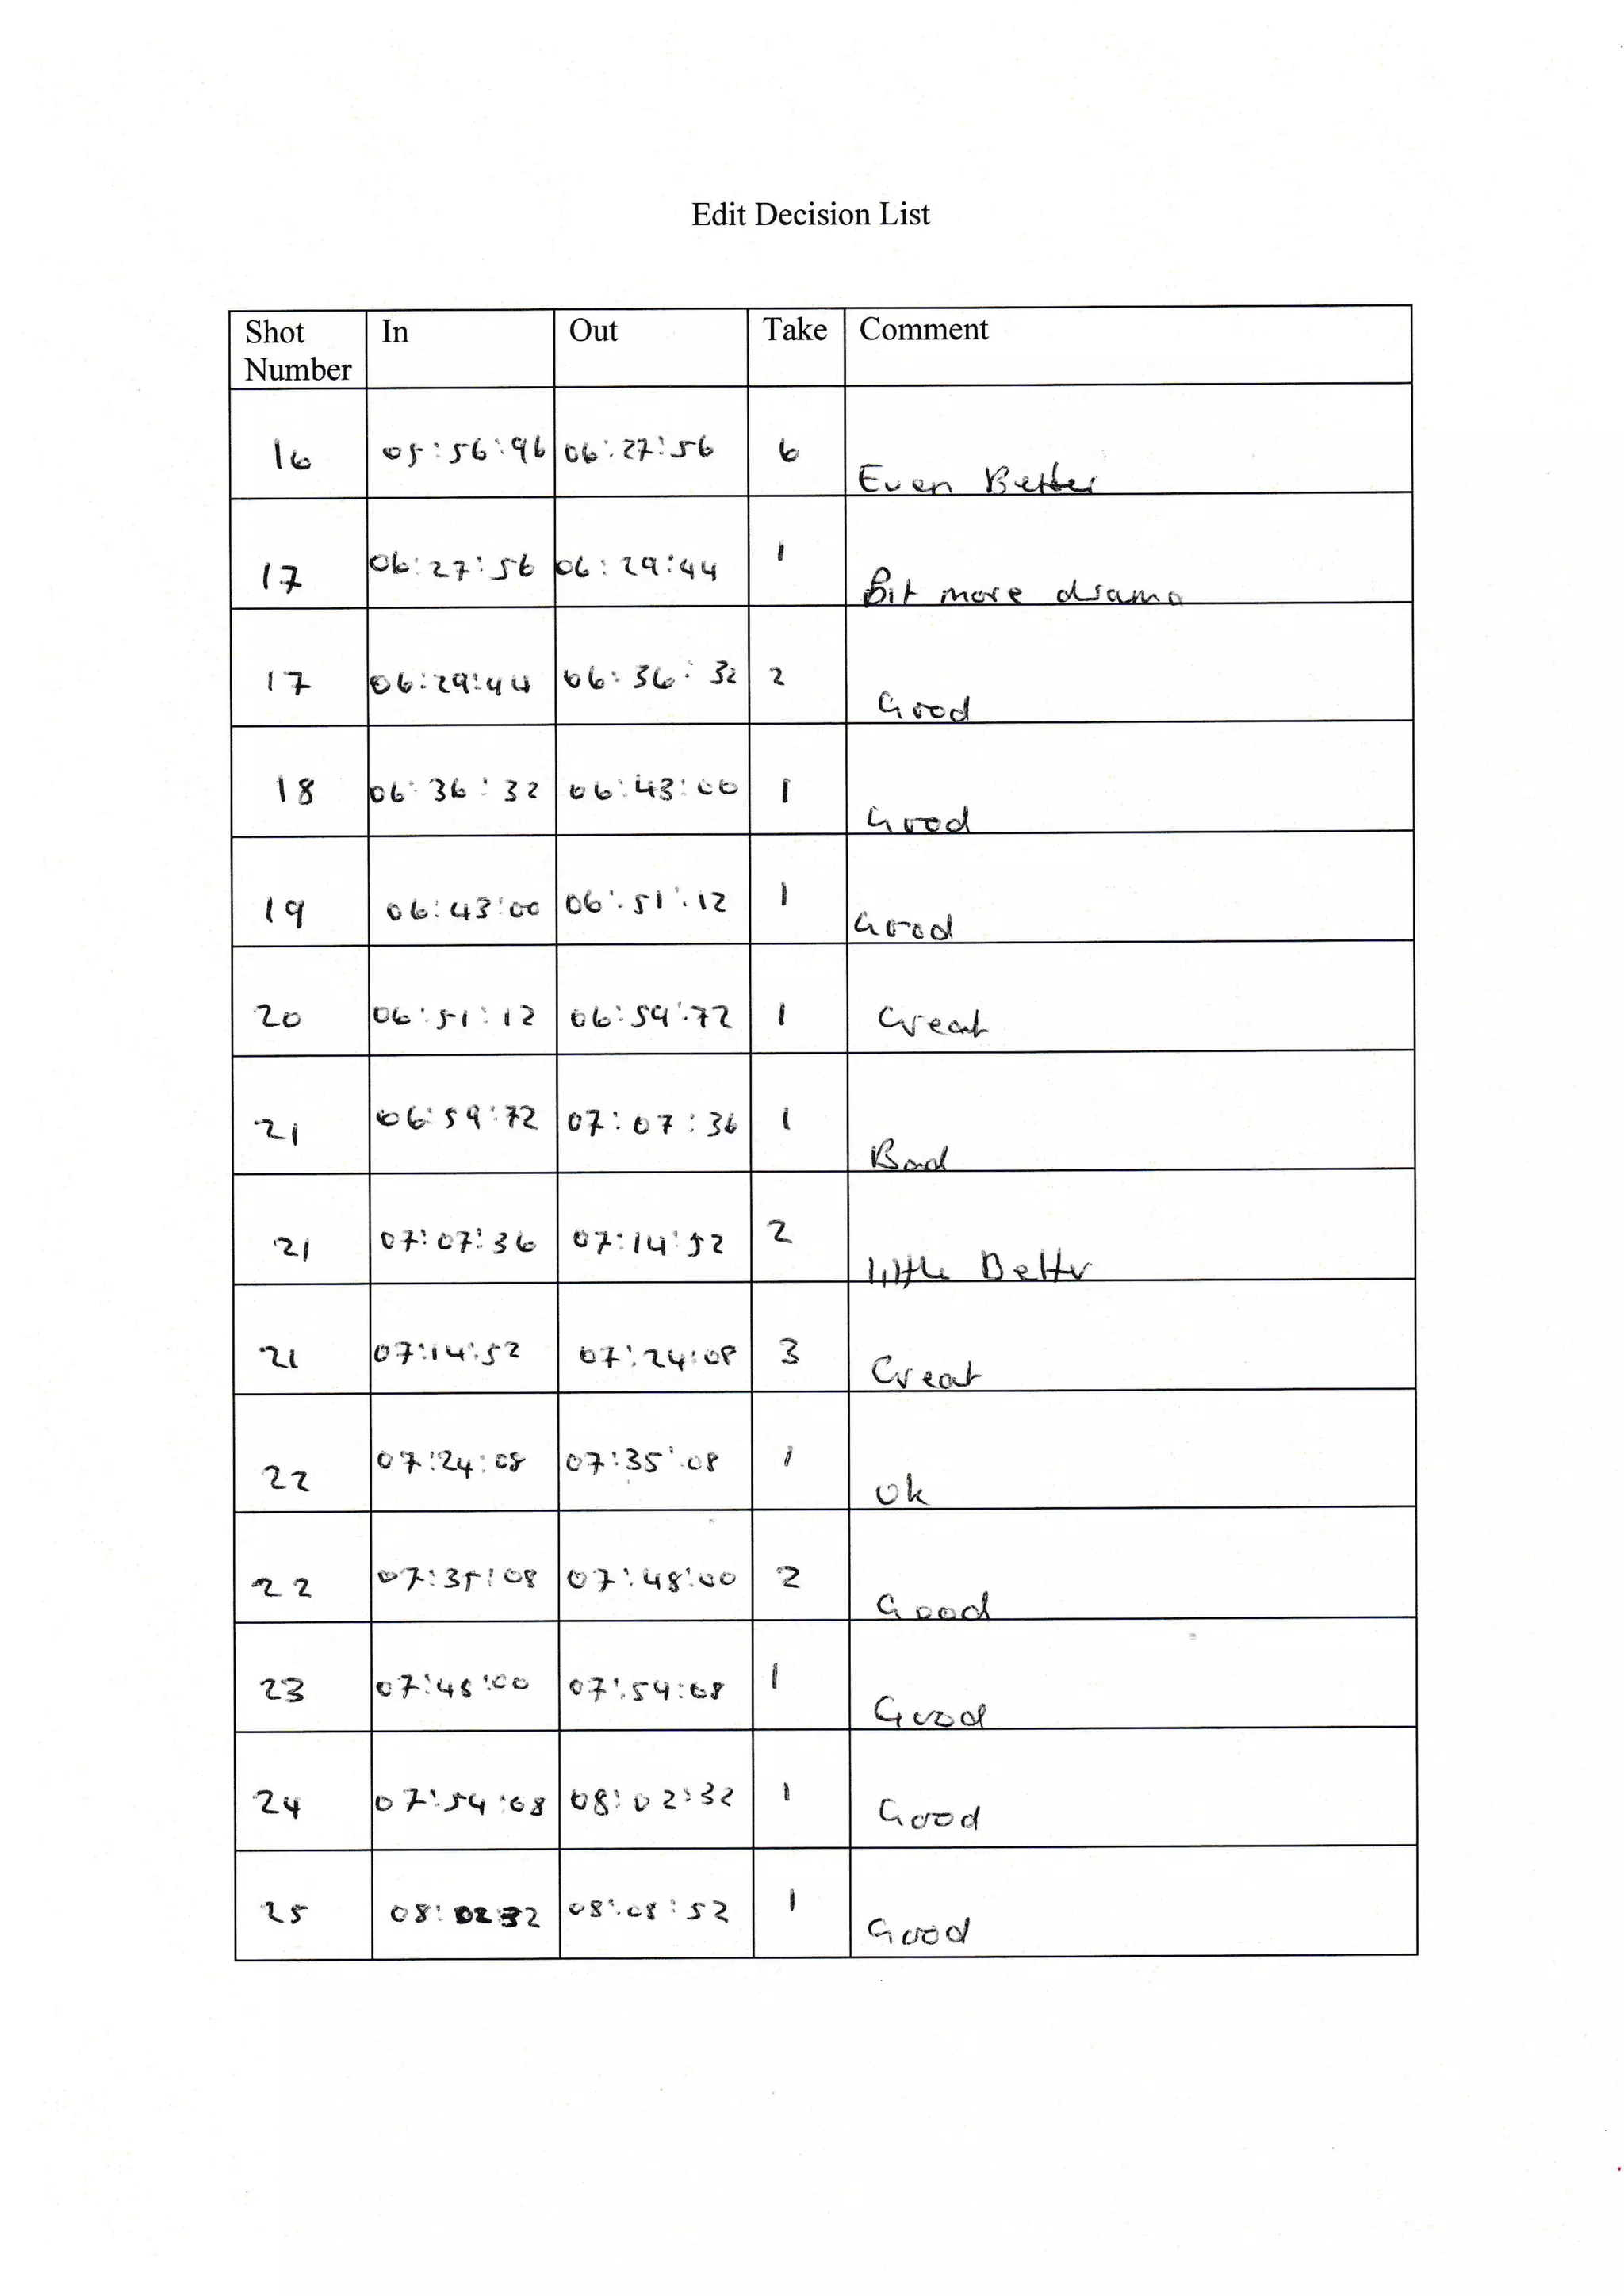 Edit Decision List
Shot Number In Out Take Comment
16 05:56:96 06:27:56 6 Even Better
17 06:27:56 06:29:44 1 Bit more drama
17 06:29:44 06:36:32 2 Good
18 06:36:32 06:43:00 1 Good
19 06:43:00 06:51:12 1 Good
20 06:51:12 06:59:72 1 Great
21 06:59:72 07:07:36 1 Bad
21 07:07:36 07:14:52 2 little Better
21 07:14:52 07:24:08 3 Great
22 07:24:08 07:35:08 1 ok
22 07:35:08 07:48:00 2 Good
23 07:48:00 07:54:68 1 Good
24 07:54:68 08:02:32 1 Good
25 08:02:32 08:08:52 1 Good